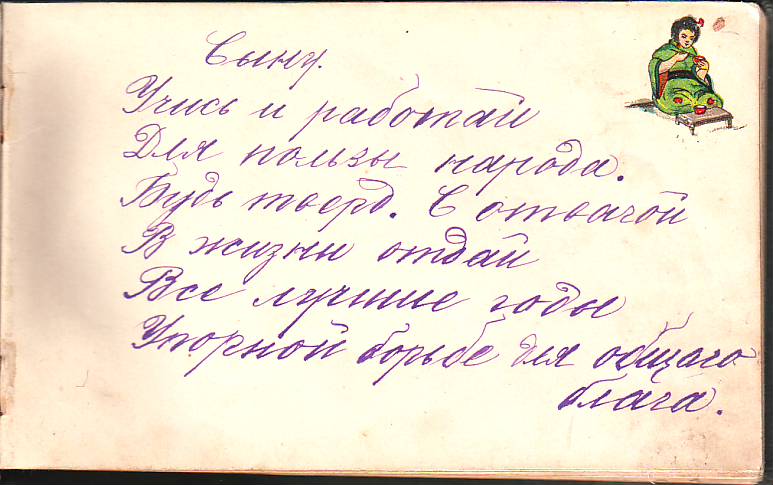 Сыну.
Учись и работай
Для пользы народа.
Будь тверд. С отвагой
В жизни отдай
Все лучшие годы
Упорной борьбе для общаго
блага.